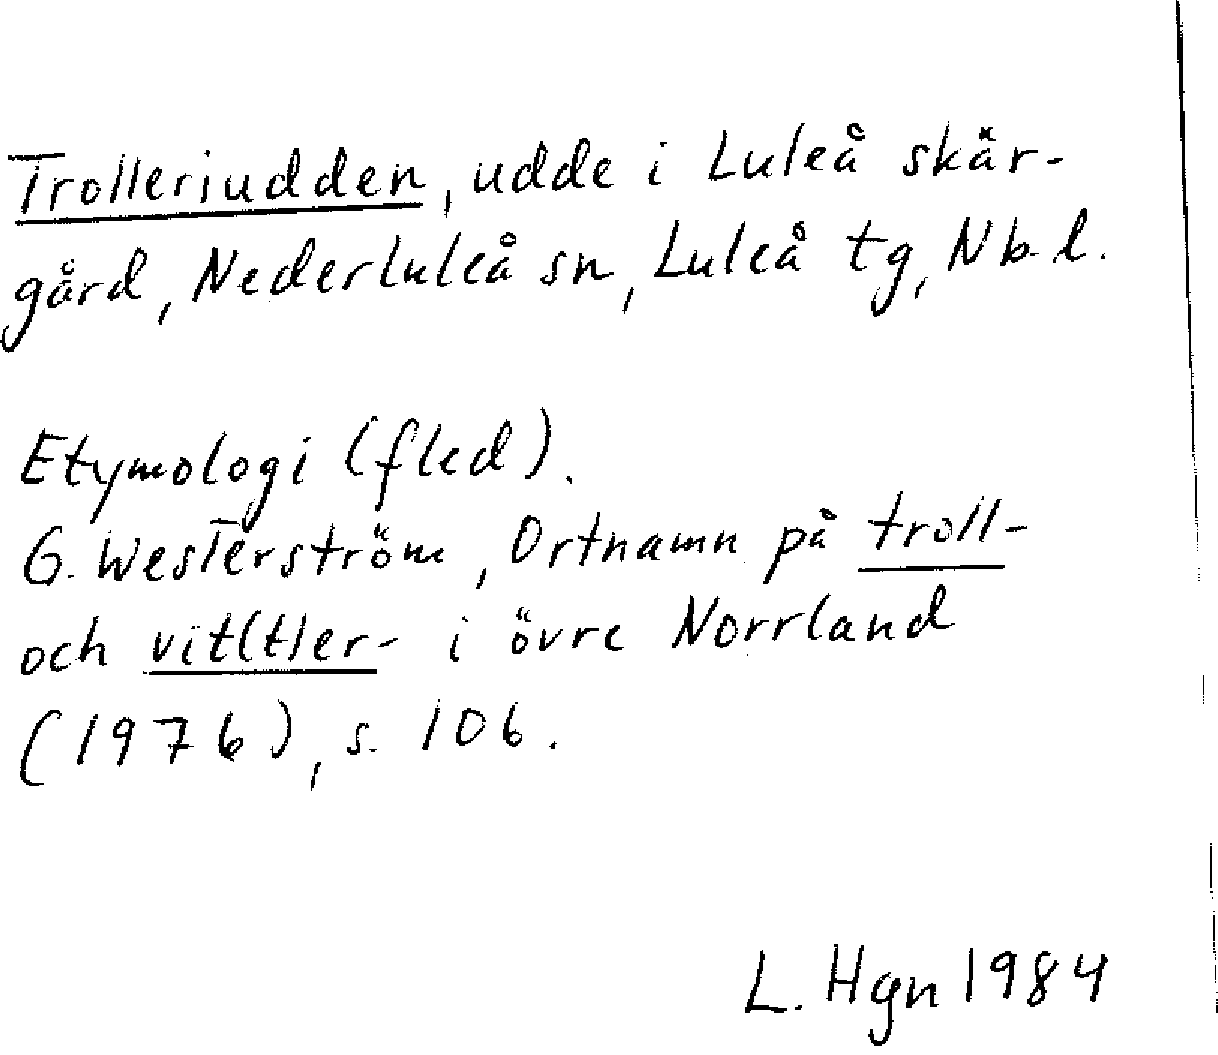 Trolleriudden, udde i Luleå skär-
gård, Nederluleå sn, Luleå tg, Nb. l.
Etymologi (fled).
G. Westerström, Ortnamn på troll-
och vit(t)er- i övre Norrland
(1976), s. 106.
L. Hgn 1984